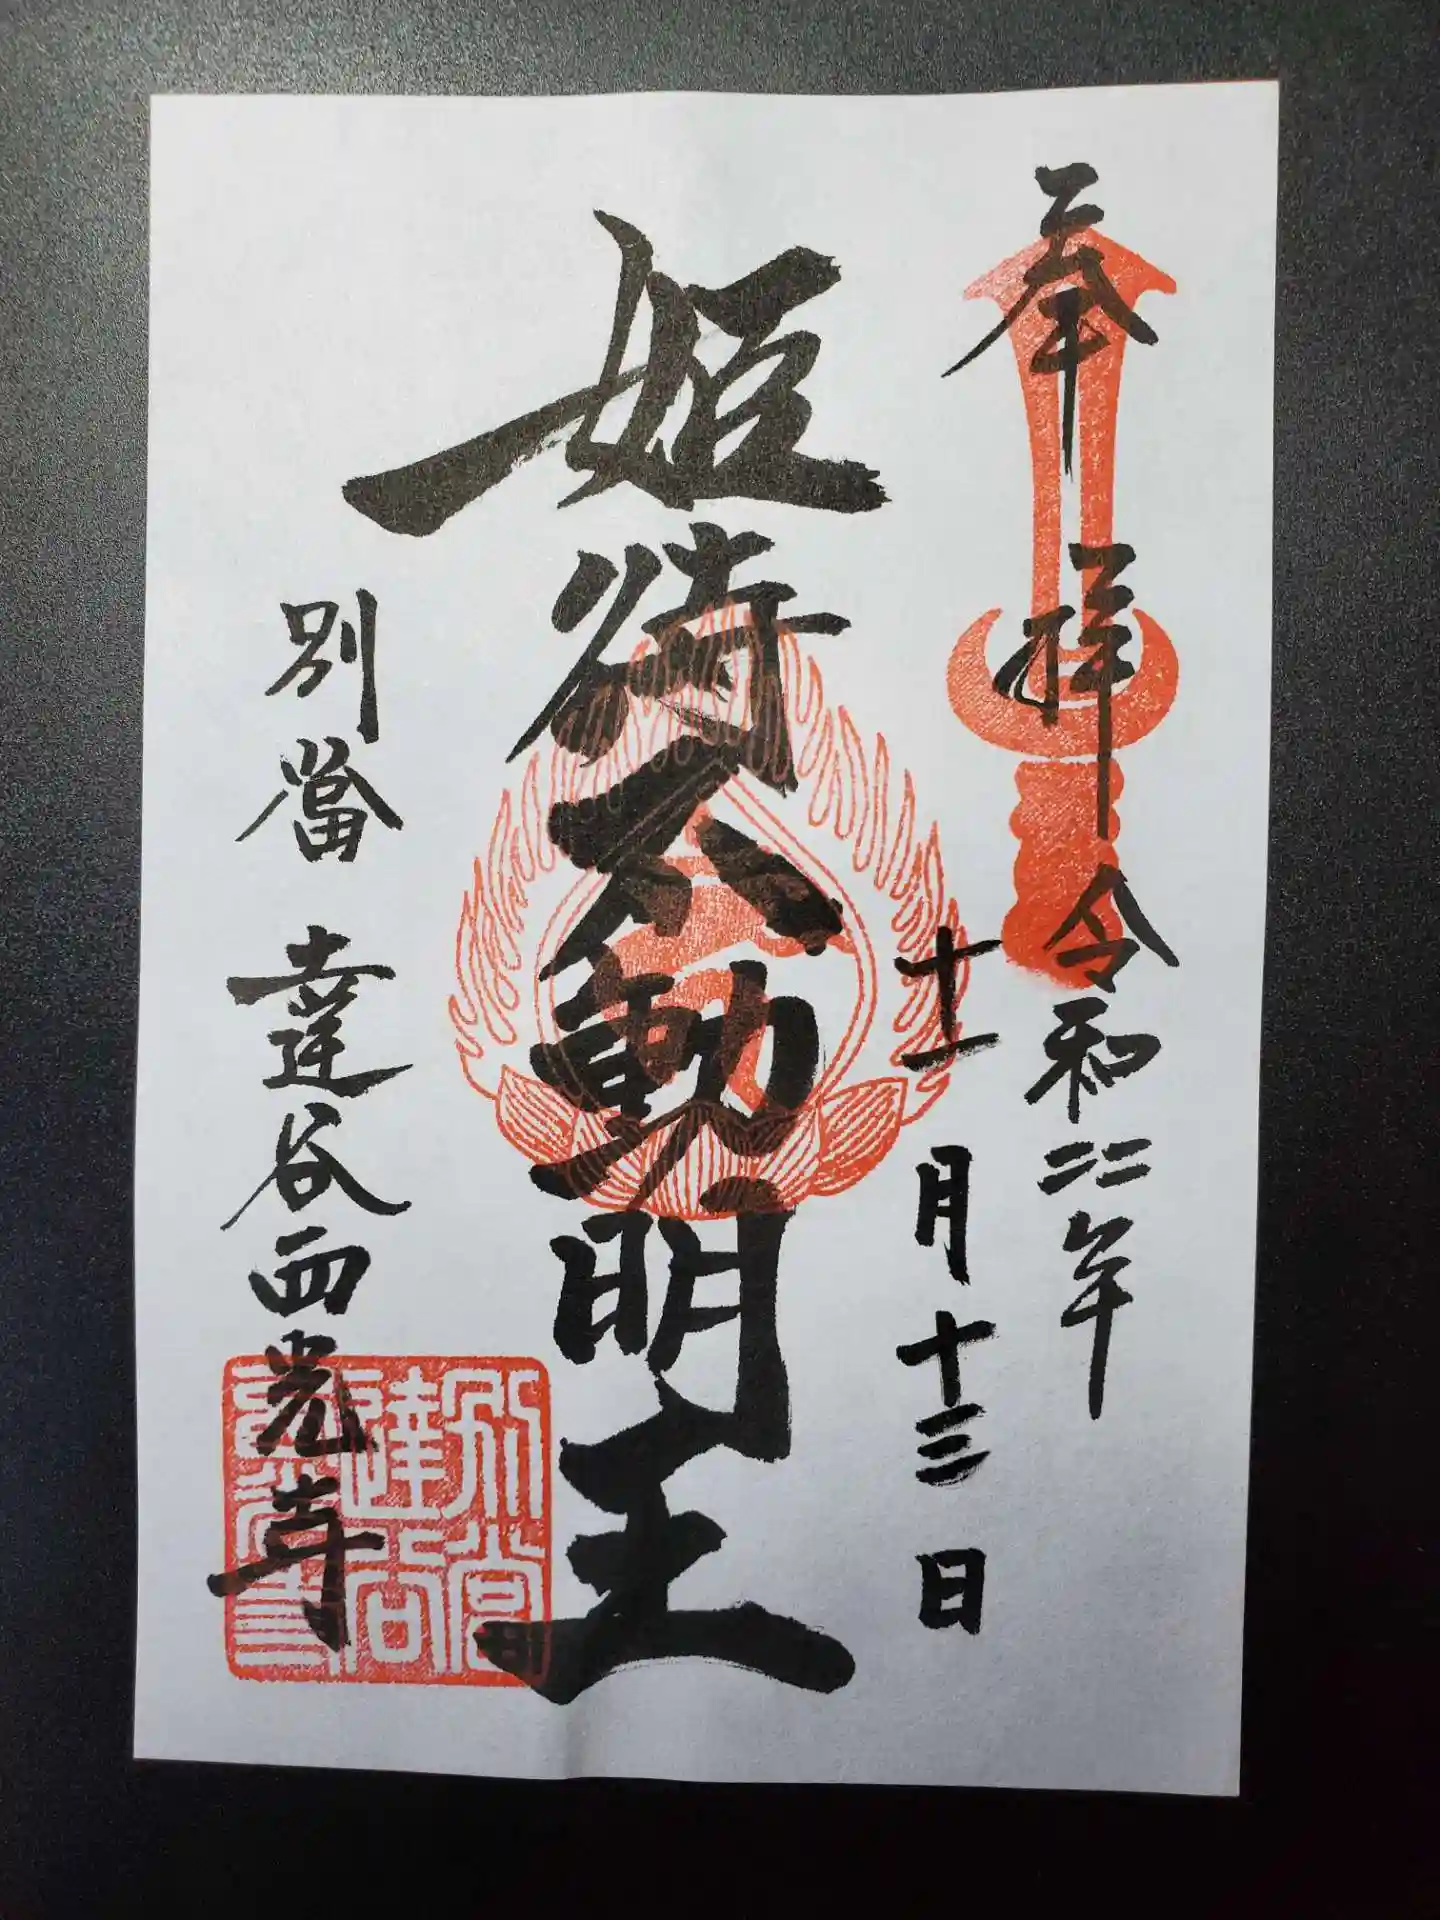 奉拝
令和二二年
十一月十三日
姫待不動明王
別當 達谷西光寺
別當達谷西光寺